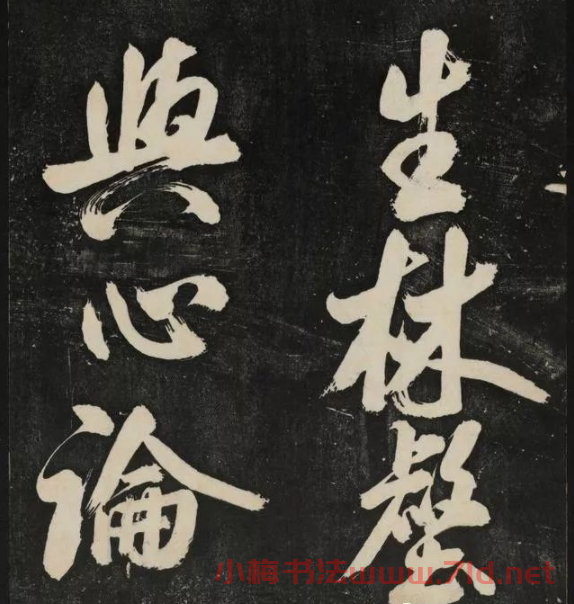 生林壑
與心論
小梅书法www.7ld.net